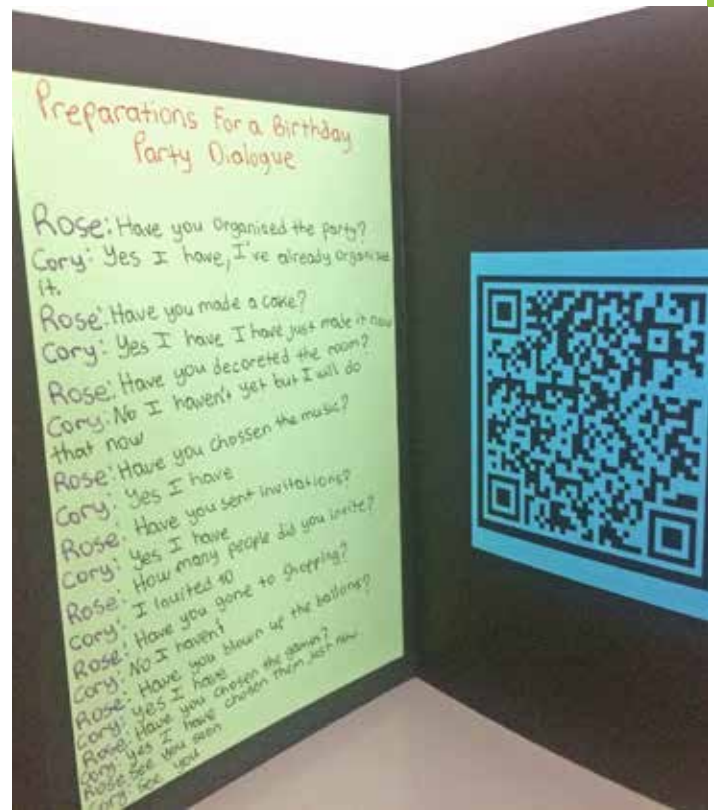 Preparations For a Birthday
Party Dialogue
Rose: Have you organised the party?
Cory: Yes I have, I've already organised
it.
Rose: Have you made a cake?
Cory: Yes I have I have just made it now
Rose: Have you decoreted the room?
Cory: No I haven't yet but I will do
that now
Rose: Have you chossen the music?
Cory: Yes I have
Rose: Have you sent invitations?
Cory: Yes I have
Rose: How many people did you invite?
Cory: I invited 10
Rose: Have you gone to shopping?
Cory: No I haven't
Rose: Have you blown up the ballons?
Cory: Yes I have
Rose: Have you chosen the games?
Cory: Yes I have chosen them just now.
Rose: See you soon
Cory: See you